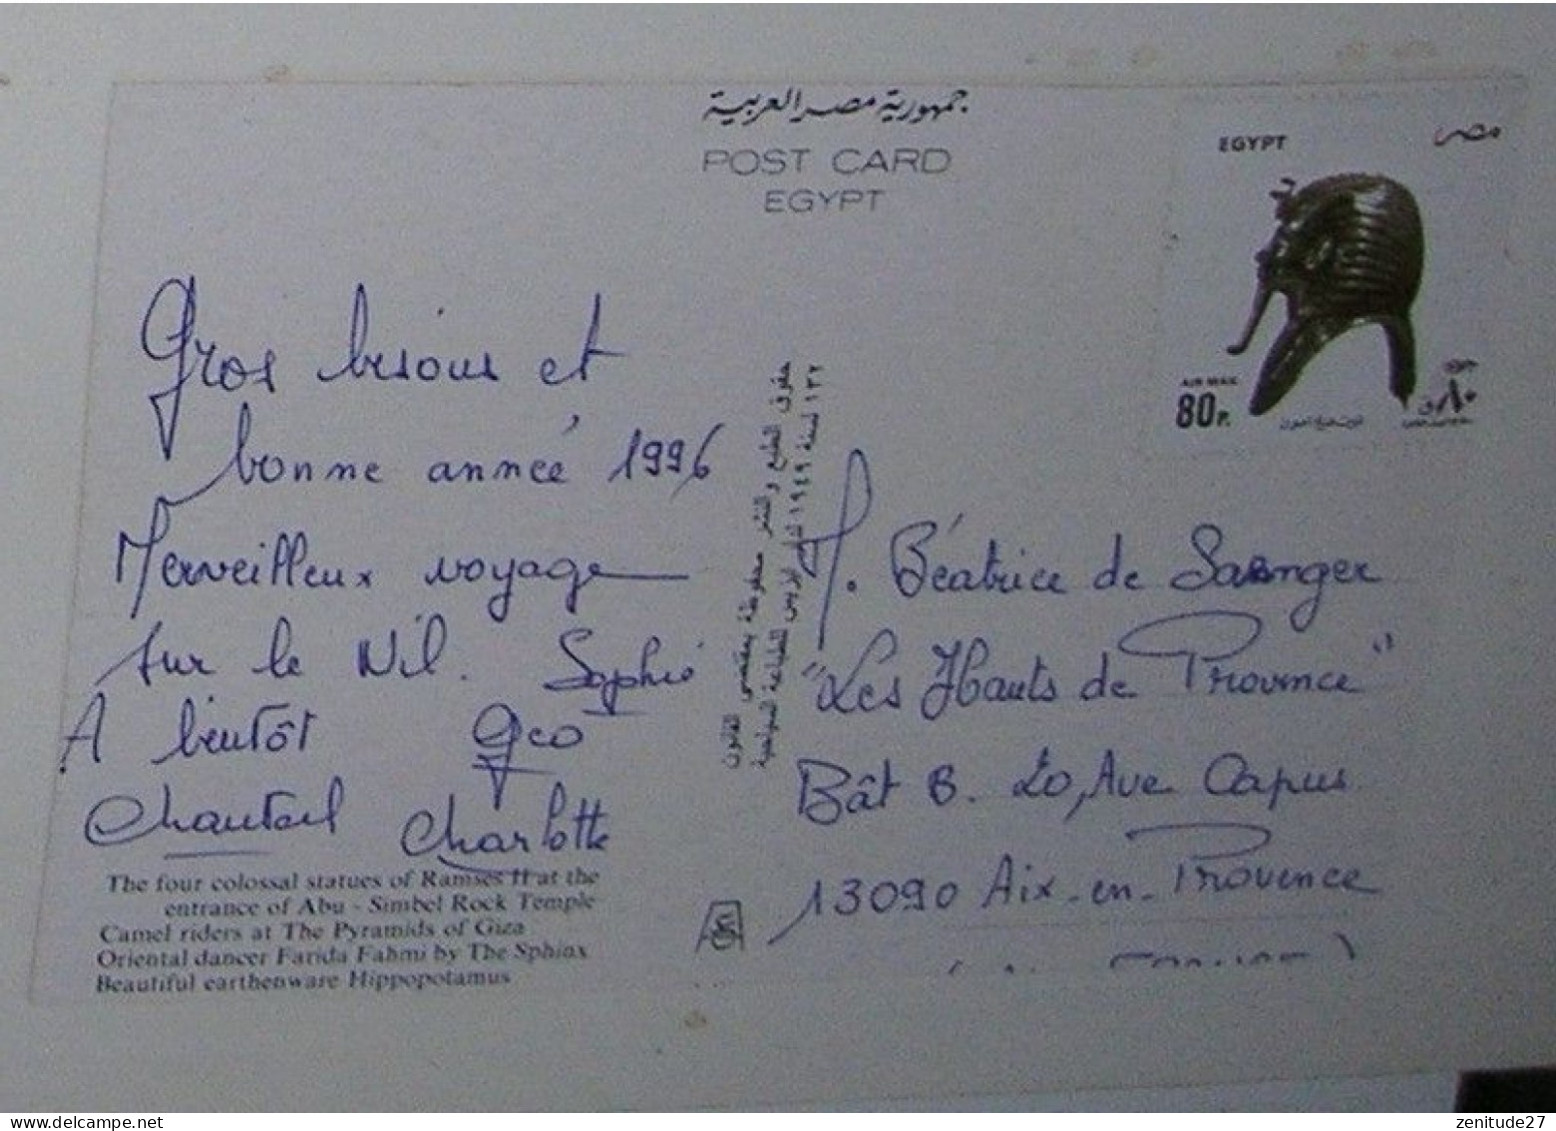 جمهورية مصر العربية
POST CARD
EGYPT
EGYPT
مصر
AIR MAIL
80 P.
Gros bisous et
bonne année 1996
Merveilleux voyage
sur le Nil. Sophie
A bientôt Géo
Chantal Charlotte
The four colossal statues of Ramses II at the
entrance of Abu - Simbel Rock Temple
Camel riders at The Pyramids of Giza
Oriental dancer Farida Fahmi by The Sphinx
Beautiful earthenware Hippopotamus
حقوق الطبع والنشر محفوظة بمقتضى القانون
١٣٢ لسنة ١٩٤٩ لدار لوريس للطباعة السياحية
M. Béatrice de
"Les Hauts de Provence"
Bât B. 20, Ave Capus
13090 Aix-en-Provence
delcampe.net
zenitude27